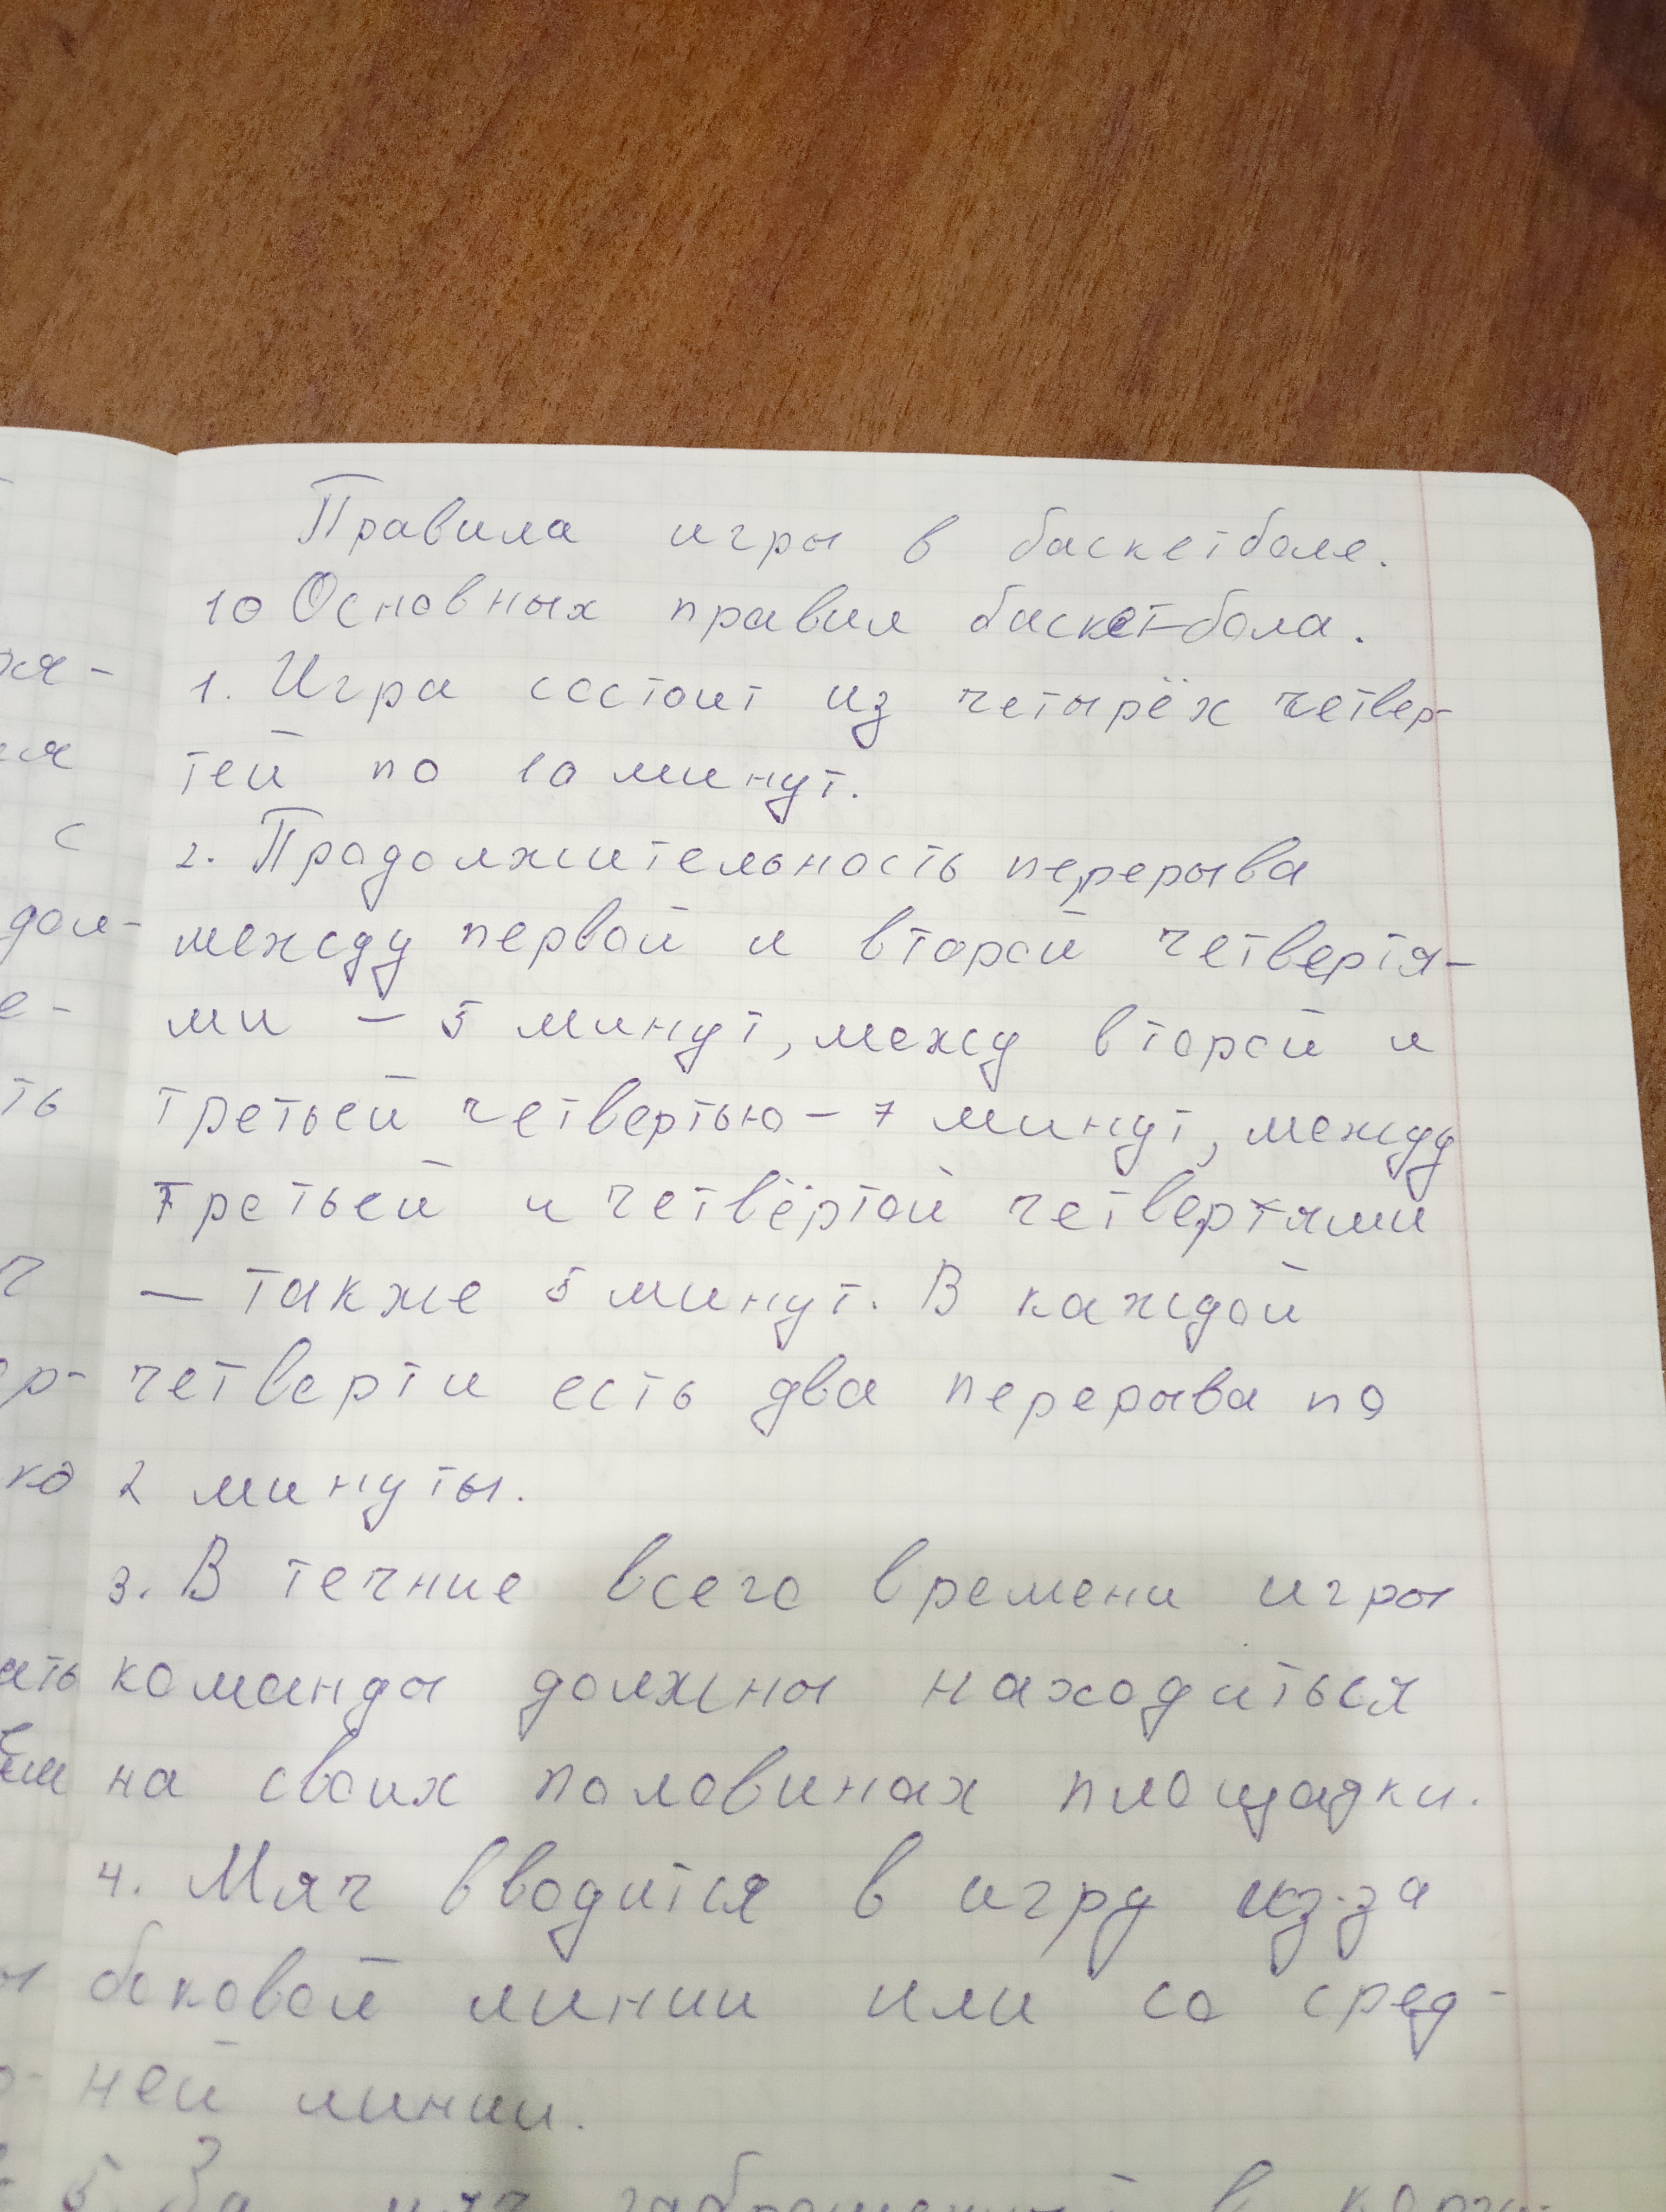 Правила игры в баскетболе.
10 Основных правил баскетбола.
1. Игра состоит из четырёх четвер-
тей по 10 минут.
2. Продолжительность перерыва
между первой и второй четвертя-
ми – 5 минут, межу второй и
третьей четвертью – 7 минут, между
третьей и четвёртой четвертями
– также 5 минут. В каждой
четверти есть два перерыва по
2 минуты.
3. В течние всего времени игры
команды должны находиться
на своих половинах площадки.
4. Мяч вводится в игру из-за
боковой линии или со сред-
ней линии.
5. За мяч заброшенный в